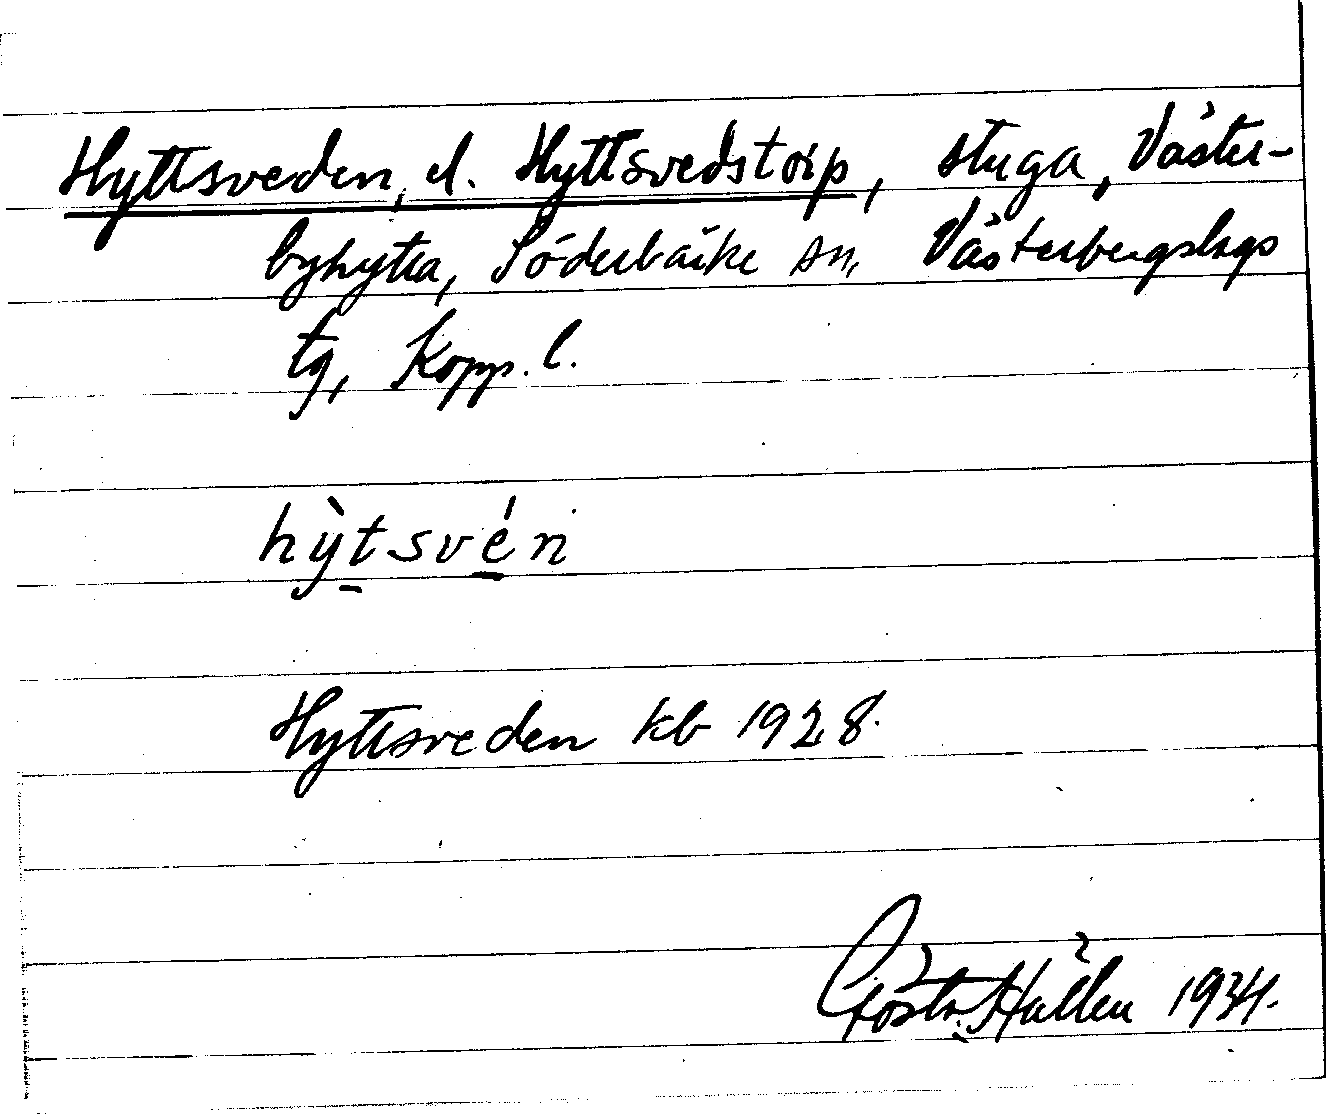 Hyttsveden, el. Hyttsvedstorp, stuga, Väster-
byhytta, Söderbärke sn, Västerbergslags
tg, Kopp. l.
hy̆̀tsvén
Hyttsveden kb 1928.
Gösta Hallén 1934.